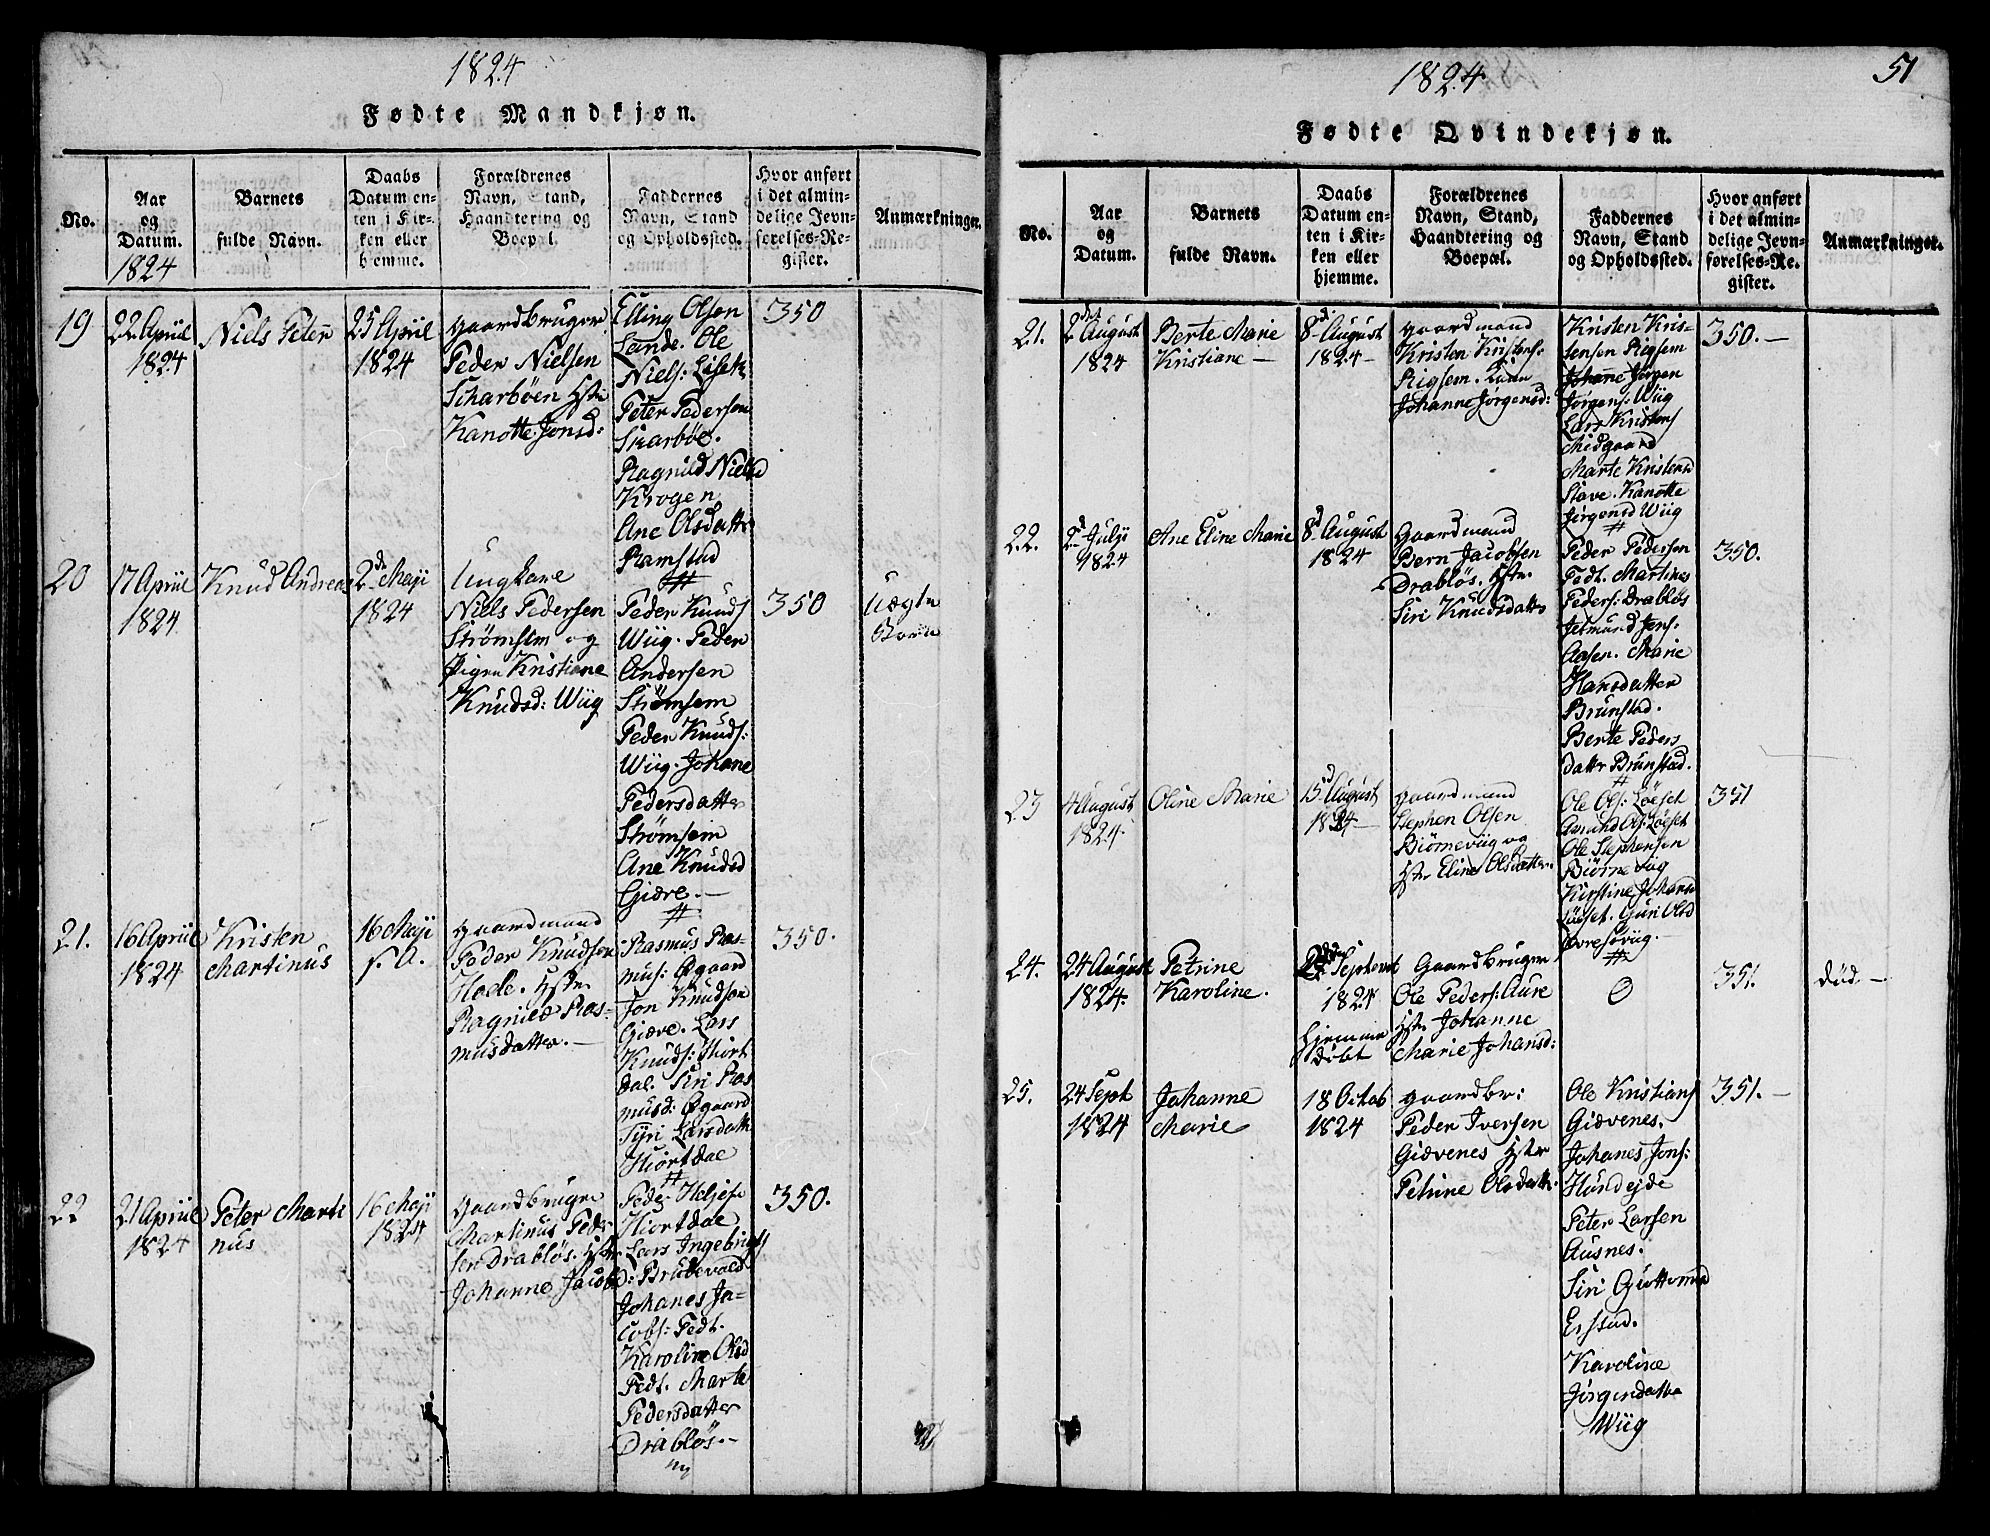 1824
Fødte Mandkjøn.
No.
Aar
og
Datum.
1824
Barnets
fulde Navn.
Daabs
Datum en-
ten i Kir-
ken eller
hjemme.
Forældrenes
Navn, Stand,
Haandtering og
Boepæl.
Faddernes
Navn, Stand
og Opholdssted.
Hvor anført
i det almin-
delige Jevn-
førelses-Re-
gister.
Anmærkninger.
19
22 Apriil
1824
Niels Peter
25 Apriil
1824
Gaardbruger
Peder Nielsen
Scharbøen Hstr
Kanotte Jonsd:
Elling Olsen
Lande. Ole
Niels: Liset
Peter Pedersen
Skarbøe.
Ragnild Nielsd
Krogen
Ane Olsdatter
Ramstad
350
20
17 Apriil
1824
Knud Andreas
2d Maji
1824
Ungkarl
Niels Pedersen
Strømsem og
Pigen Kristiane
Knudsd: Wiig
Peder Knuds
Wiig. Peder
Andersen
Strømsem
Peder Knuds:
Wiig. Johane
Pedersdatter
Strømsem
Ane Knudsd
Giære.—
350
Uægte
Barn
21.
16 Apriil
1824
Kristen
Martinus
16 Maji
s. A.
Gaardmand
Peder Knudsen
Hole. Hstr
Ragnild Ras-
musdatter.—
Rasmus Ras-
mus: Øgaard
Jon Knudsen
Giære. Lars
Knuds: Hiort
dal. Siri Ras
musd: Øgaard
Syri Larsdatt
Hiortdal
350.
22
21 Apriil
1824
Peter Marti
nus
16 Maji
1824
Gaardbruger
Martinus Peder
sen Drabløs. Hstr
Johanne Jacobsd:
Peder
Hiortdal
Lars Ingebrigts
Brudevold
Johanes Ja-
cobs: Fedt.
Karoline Olsd
Fedt. Marte
Pedersdatter
Drabløs.—
350.
1824
51
Fødte Qvindekjøn.
No.
Aar
og
Datum.
Barnets
fulde Navn.
Daabs
Datum en-
ten i Kir-
ken eller
hjemme.
Forældrenes
Navn, Stand,
Haandtering og
Boepæl.
Faddernes
Navn, Stand
og Opholdssted.
Hvor anført
i det almin-
delige Jevn-
førelses-Re-
gister.
Anmærkninger.
21.
2den August
1824
Berte Marie
Kristiane —
8d August
1824 —
Gaardmand
Kristen Kristens:
Rigsem.
Johanne Jørgensd:
Kristen Kris-
tensen Rigsem
Johanne Jørgen
Jørgens: Wiig
Lars Kristens
Midgaard
Marte Kristensd
Stave. Kanotte
Jørgensd Wiig
350. —
22.
2d Julji
1824
Ane Eline Marie
8d August
1824
Gaardmand
Bern Jacobsen
Drabløs. Hstr.
Siri Knudsdatter
Peder Pedersen
Fedt. Martines
Peders: Drabløs
Jetmund Jens:
Aasen. Marie
Hansdatter
Brunstad.
Berte Peders
datter Brunstad.
350.
23
4 August
1824.
Oline Marie
15d August
1824 —
Gaardmand
Stephen Olsen
Biørnevüg og
Hstr Eline Olsdatter.
Ole Ols: Løeset
Amund Ols: Løeset
Ole Stephensen
Biørnevüg
Kirstine Johansd
Løeset. Guri Olsd
Øvresøvüg.
351
24.
24 August
1824.
Petrine
Karoline.
Septembr
1824
hjemme
døbt
Gaardbruger
Ole Peders: Aure
Hstr Johanne
Marie Johansd:
0
351.
Død —
25.
24 Sept
1824
Johanne
Marie
18 Octob
1824
Gaardbr:
Peder Iversen
Giævenes Hstr
Petrine Olsdattr.
Ole Kristians
Giævenes.
Johanes Jons:
Hundejde
Peter Larsen
Ausnes.
Siri Guttormsd
Erstad.
Karoline
Jørgendatter
Wiig
351. —